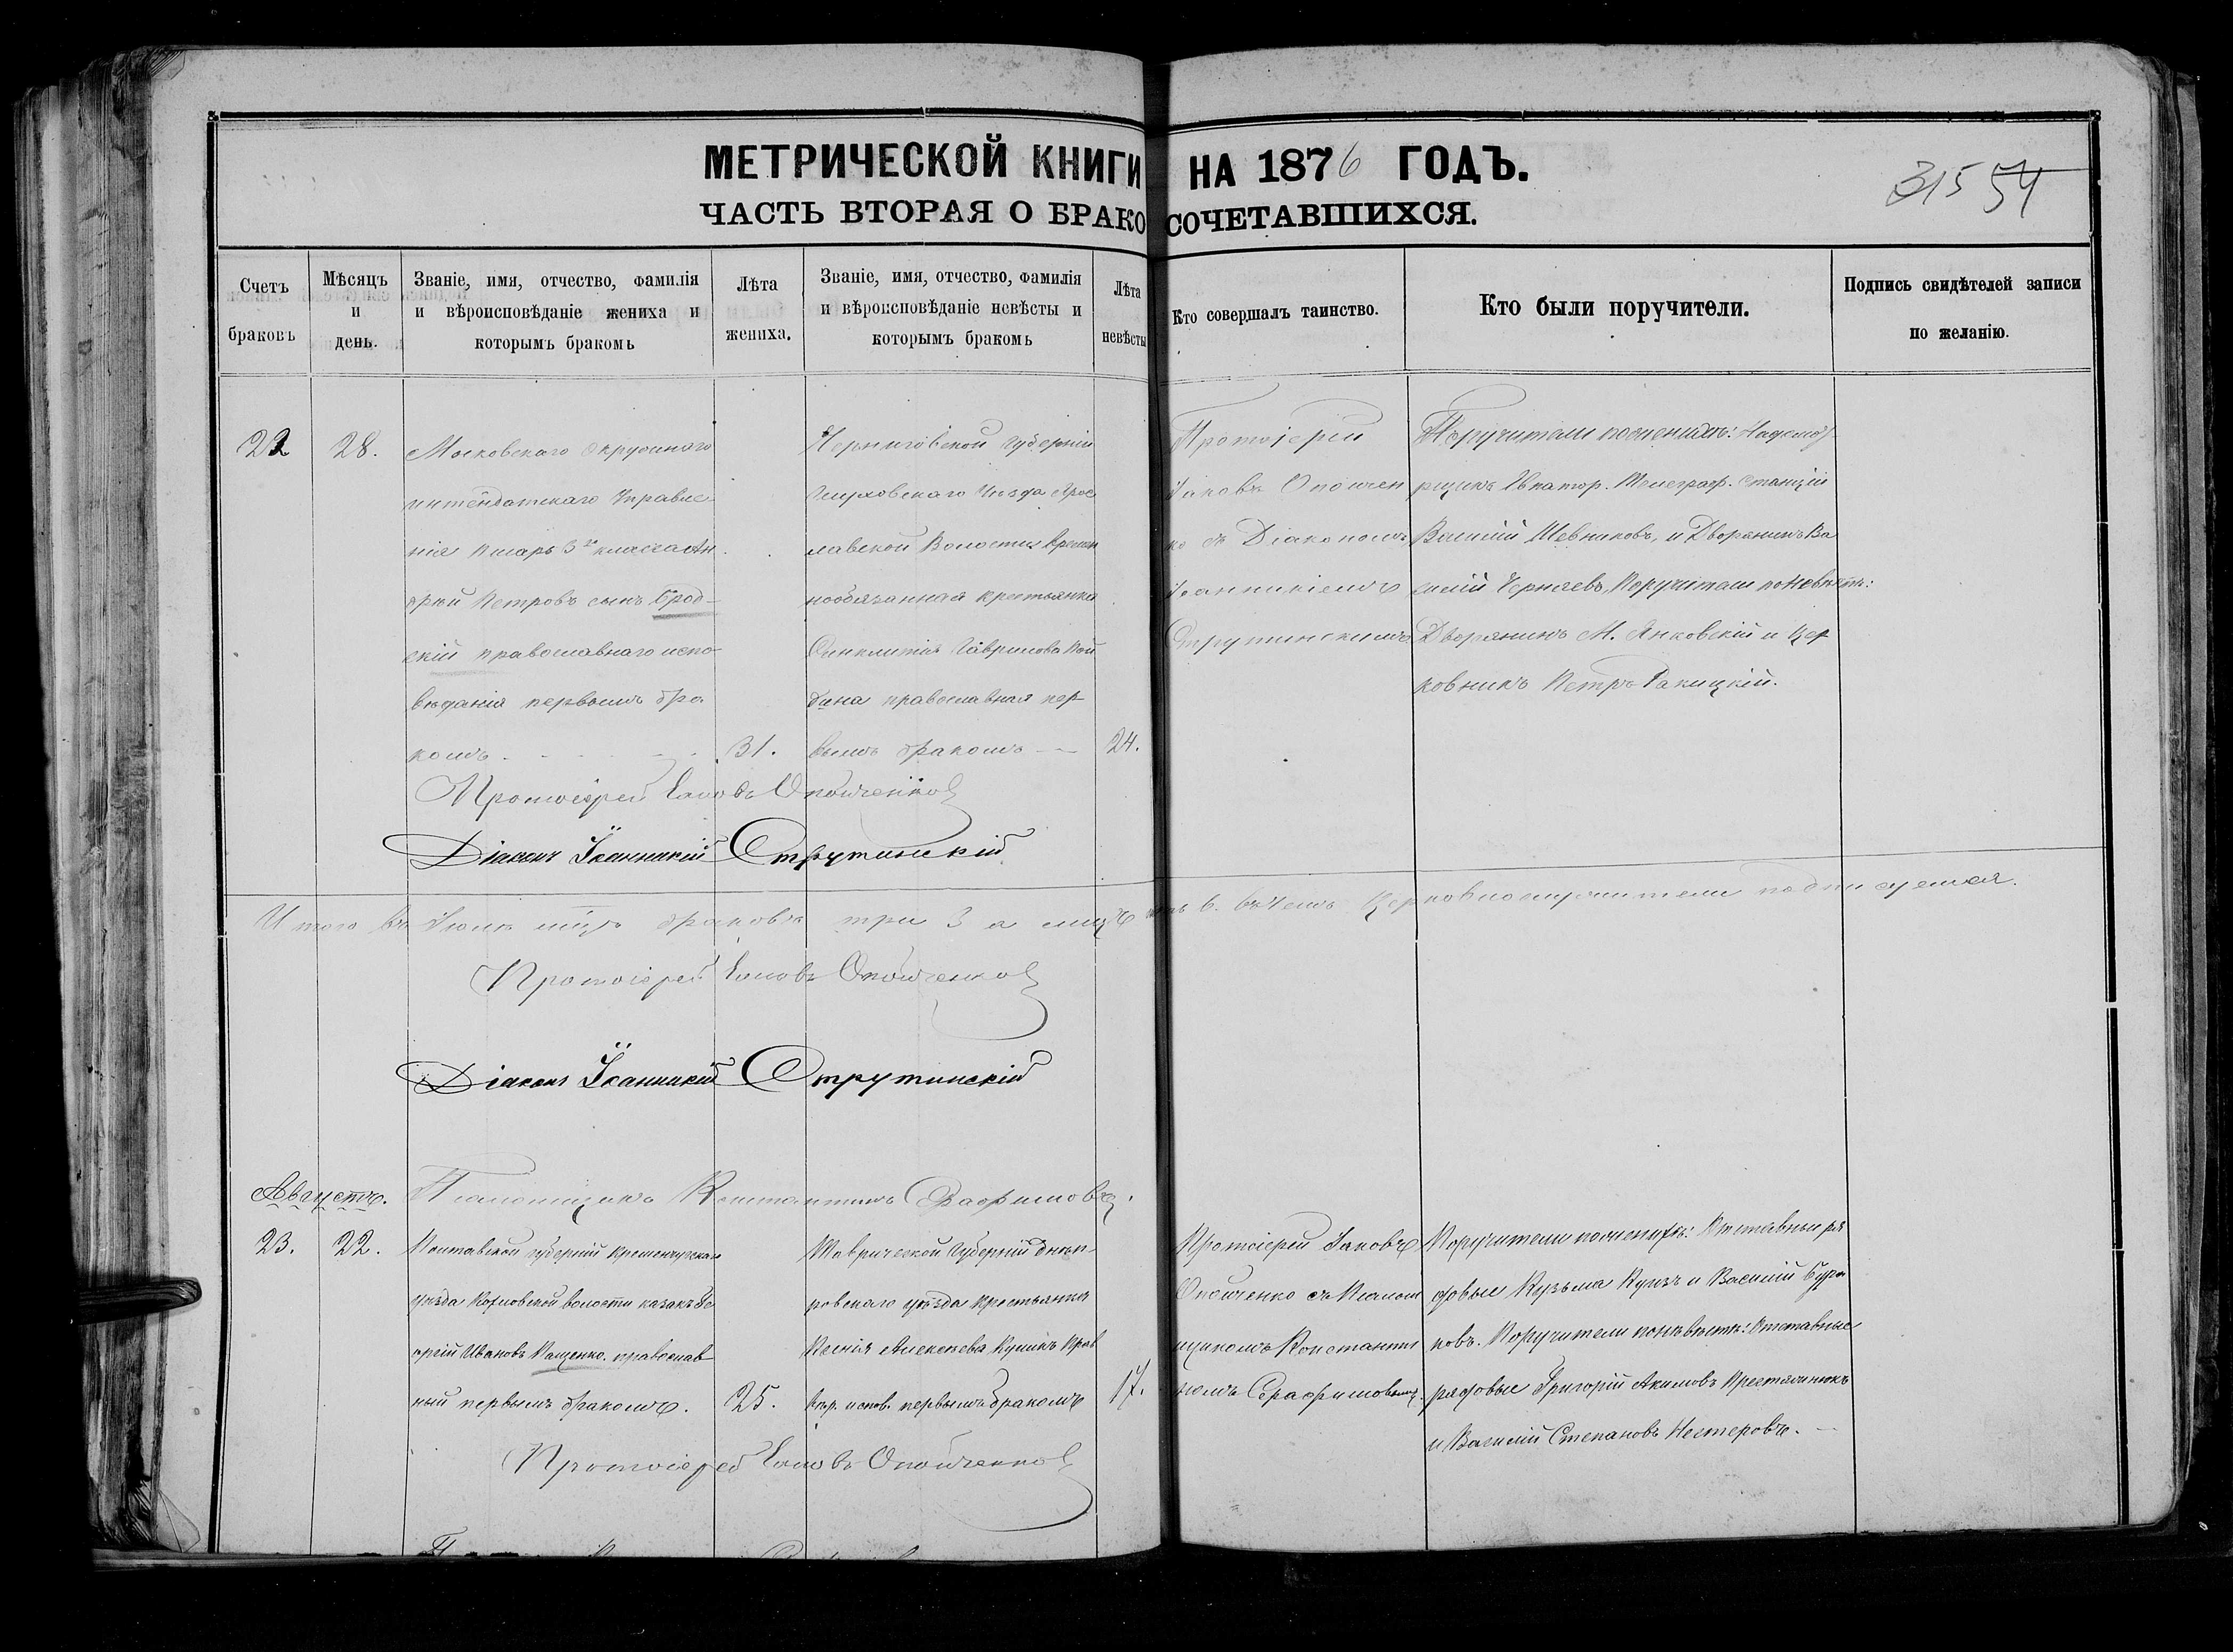 МЕТРИЧЕСКОЙ КНИГИ НА 1876 ГОДЪ.
315 54
ЧАСТЬ ВТОРАЯ О БРАКОСОЧЕТАВШИХСЯ.
Счетъ браковъ
Мѣсяцъ и день.
Званіе, имя, отчество, фамилія
и вѣроисповѣданіе жениха и
которымъ бракомъ
Лѣта жениха.
Званіе, имя, отчество, фамилія
и вѣроисповѣданіе невѣсты и
которымъ бракомъ
Лѣта невѣсты
Кто совершалъ таинство.
Кто были поручители.
Подпись свидѣтелей записи
по желанію.
22
28.
Московскаго окружнаго
интендатскаго Управле-
нія писарь 3го класса Ан-
дрей Петровъ сынъ Брод-
скій православнаго испо-
вѣданія первымъ бра-
комъ
31.
Черниговской губерніи
Глуховскаго Уѣзда Ярос
лавской Волости Времен
нообязанная крестьянка
Синклитія Гаврилова
православная пер-
вымъ бракомъ
24.
Протоіерей
Іаковъ Опойчен
ко съ Діакономъ
Іоанникіемъ
Струтинскимъ
Поручители по женихѣ: Надсмот-
рщикъ Евпатор. Телеграф. станціи
Василій Шевниковъ, и Дворянинъ Ва
силій Черняевъ, Поручители по невѣстѣ:
Дворянинъ М. Янковскій и Цер
ковникъ Петръ Ракицкій.
Протоіерей Іаковъ Опойченко
Діаконъ Іоанникій Струтинскій
Итого въ Іюлѣ мцѣ браковъ три 3 а лицъ 6. въ чемъ Церковнослужители подписуемся.
Протоіерей Іаковъ Опойченко
Діаконъ Іоанникій Струтинскій
Августъ.
Псаломщикъ Константинъ Серафимовъ.
23.
22.
Полтавской губерніи Кременчугскаго
уѣзда Козловской волости казакъ Ге
оргій Ивановъ Кащенко. православ
ный первымъ бракомъ.
25.
Таврической Губерніи Днѣп-
ровскаго уѣзда Крестьянка
Ксенія Алексѣева Кушикъ Прав
вѣр. испов. первымъ бракомъ
17.
Протоіерей Іаковъ
Опойченко съ Псалом
щикомъ Константи
номъ Серафимовымъ.
Поручители по женихѣ: Отставные ря
довые Кузьма Купъ и Василій Бура
ковъ. Поручители по невѣстѣ: Отставные
рядовые Григорій Акимовъ Крестянинюкъ
и Василій Степановъ Нестеровъ.
Протоіерей Іаковъ Опойченко